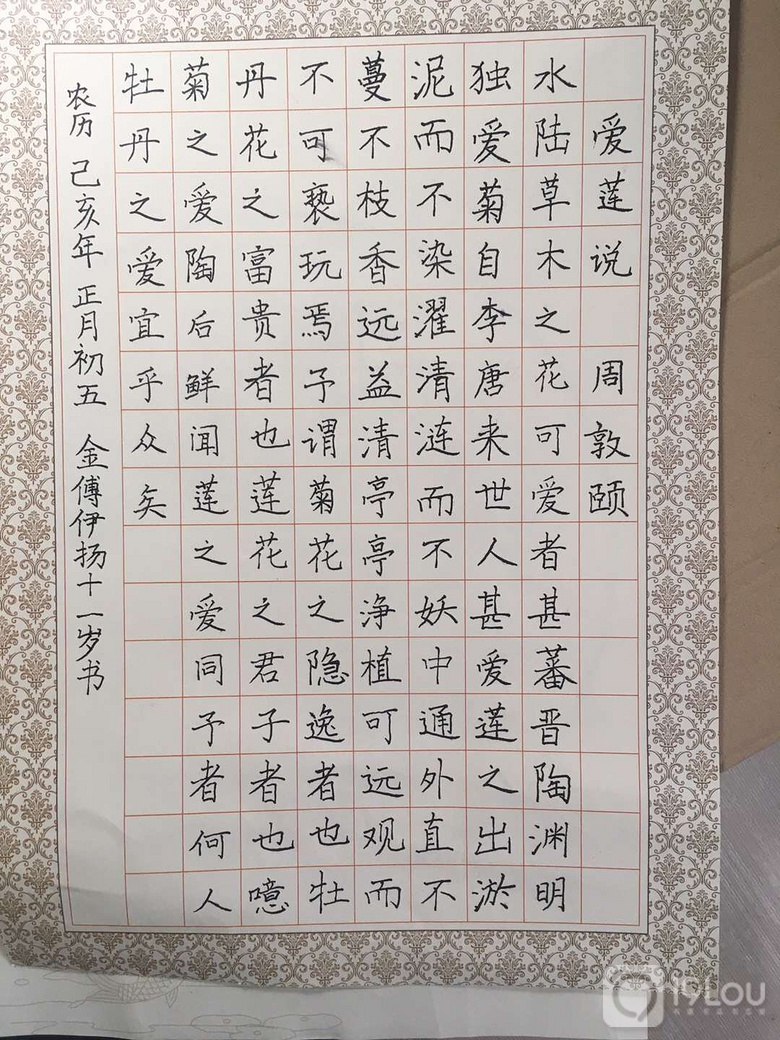 爱莲说 周敦颐
水陆草木之花可爱者甚蕃晋陶渊明
独爱菊自李唐来世人甚爱莲之出淤
泥而不染濯清涟而不妖中通外直不
蔓不枝香远益清亭亭净植可远观而
不可亵玩焉予谓菊花之隐逸者也牡
丹花之富贵者也莲花之君子者也噫
菊之爱陶后鲜闻莲之爱同予者何人
牡丹之爱宜乎众矣
农历 己亥年 正月初五 金傅伊扬十一岁书
19Lou